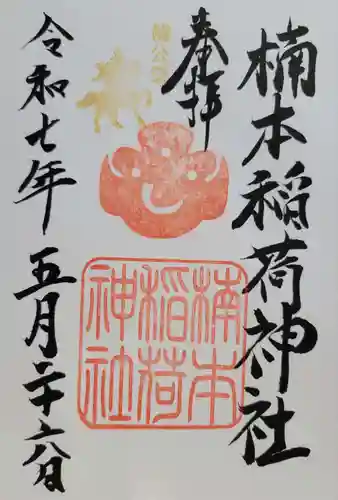 楠本稲荷神社
奉拝
楠公
楠本
稲荷
神社
令和七年五月二十六日